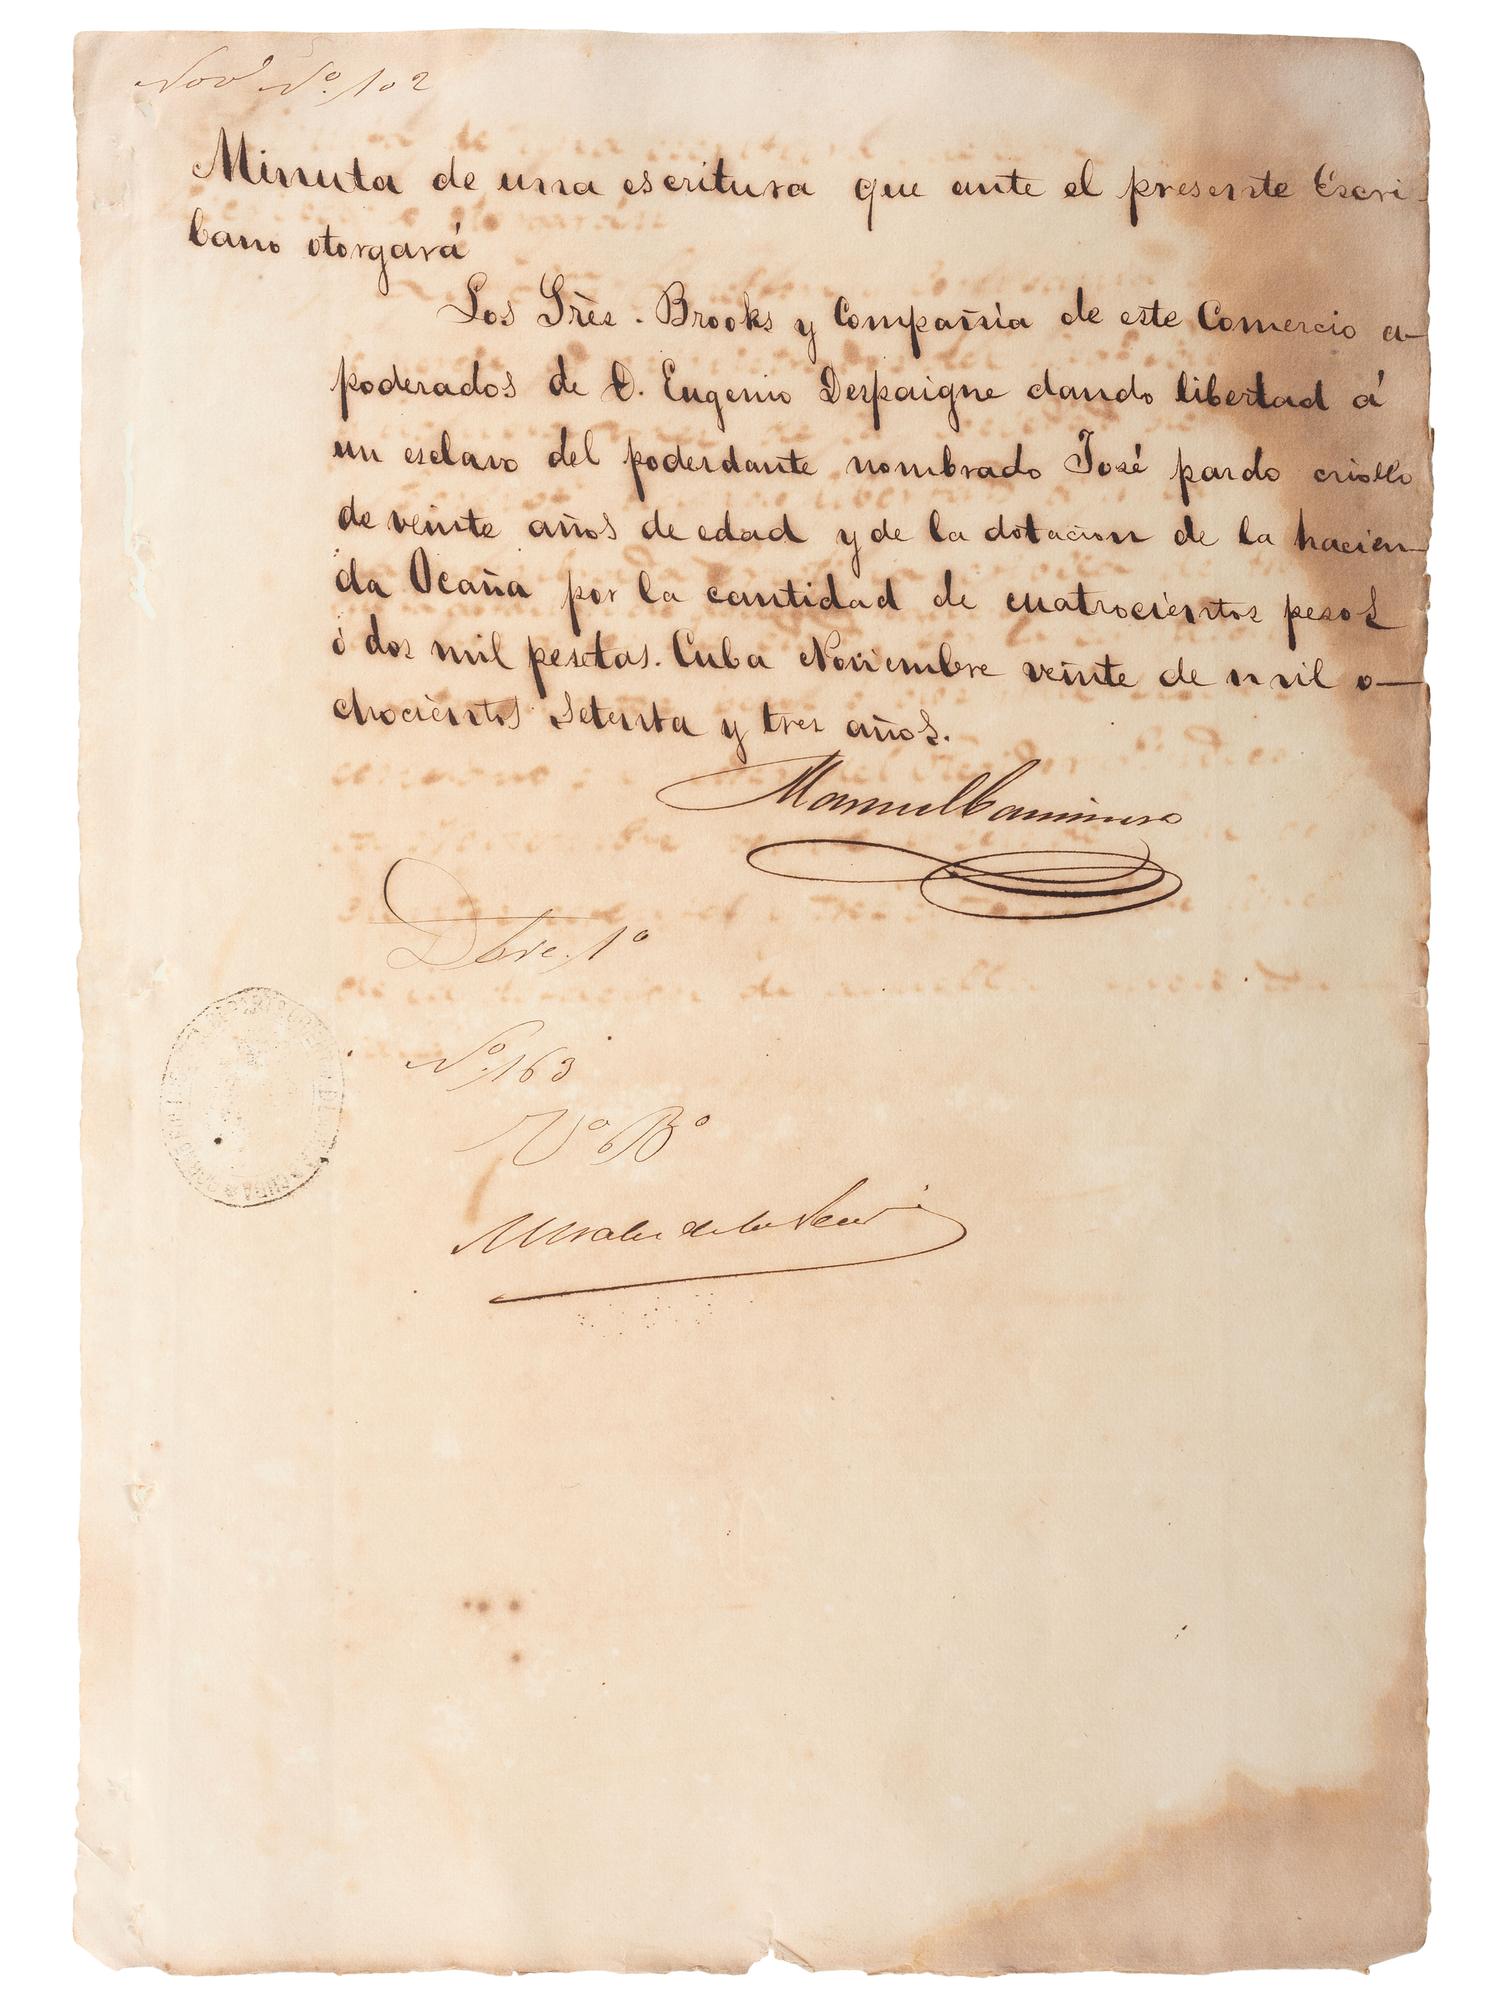 Novᵉ Nº. 102
Minuta de una escritura que ante el presente Escri-
bano otorgará
Los Sres. Brooks y Compañia de este Comercio a-
poderados de D. Eugenio Despaigne dando libertad á
un esclavo del poderdante nombrado José pardo criollo
de veinte años de edad y de la dotacion de la hacien-
da Ocaña por la cantidad de cuatrocientos pesos
ó dos mil pesetas. Cuba Noviembre veinte de mil o-
chocientos setenta y tres años.
Manuel Caminero
Dbre. 1º
Nº. 163
Vº Bº